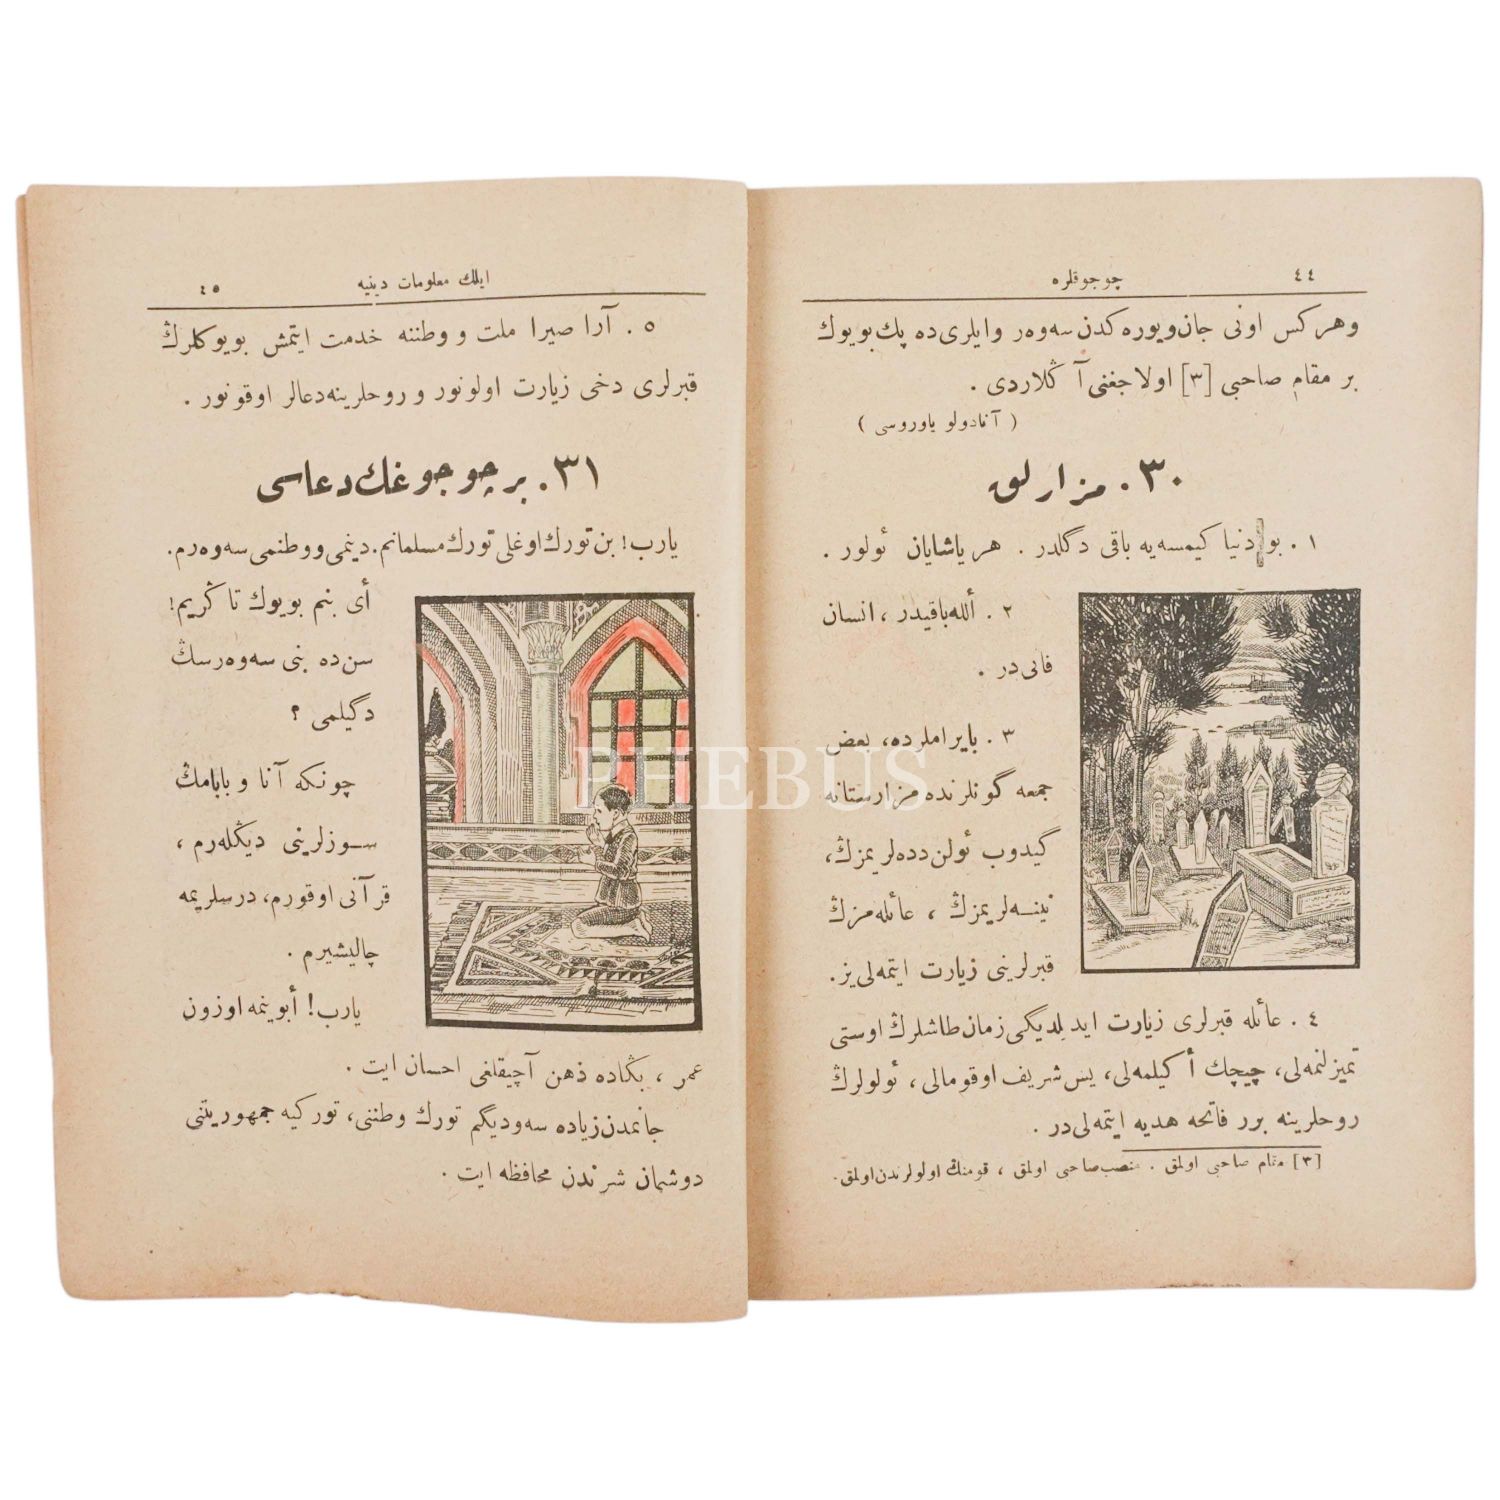 ٤٤ چوجوقلره
وهركس اونی جان ویوره كدن سه وه ر وایلری ده پك بویوك
بر مقام صاحبی [٣] اولاجغنی آ ڭلاردی .
( آنادولو یاوروسی )
٣٠ . مزارلق
١ . بو دنیا كیمسه یه باقی دگلدر . هر یاشایان ئولور .
٢ . ألله باقیدر ، انسان
فانی در .
٣ . بایراملرده، بعض
جمعه گونلرنده مزارستانه
گیدوب ئولن دده لریمزڭ،
نینه لریمزڭ ، عائله مزڭ
قبرلرینی زیارت ایتمه لی یز .
٤ . عائله قبرلری زیارت ایدیلدیگی زمان طاشلرڭ اوستی
تمیزلنمه لی، چیچك أكیلمه لی، یس شریف اوقومالی ، ئولولرڭ
روحلرینه برر فاتحه هدیه ایتمه لی در .
[٣] مقام صاحبی اولمق . منصب صاحبی اولمق ، قومنڭ اولولرندن اولمق.
ایلك معلومات دینیه ٤٥
٥ . آرا صیرا ملت و وطننه خدمت ایتمش بویوكلرڭ
قبرلری دخی زیارت اولونور و روحلرینه دعالر اوقونور .
٣١ . بر چوجوغك دعاسی
یارب! بن تورك اوغلی تورك مسلمانم. دینمی ووطنمی سه وه رم.
أی بنم بویوك تاڭریم!
سن ده بنی سه وه رسڭ
دگیلمی ؟
چونكه آنا و بابامڭ
سوزلرینی دیڭله رم ،
قرآنی اوقورم، درسلریمه
چالیشیرم .
یارب! أبوینمه اوزون
عمر ، بڭاده ذهن آچیقلغی احسان ایت .
جانمدن زیاده سه ودیگم تورك وطننی، توركیه جمهوریتنی
دوشمان شرندن محافظه ایت .
PHEBUS